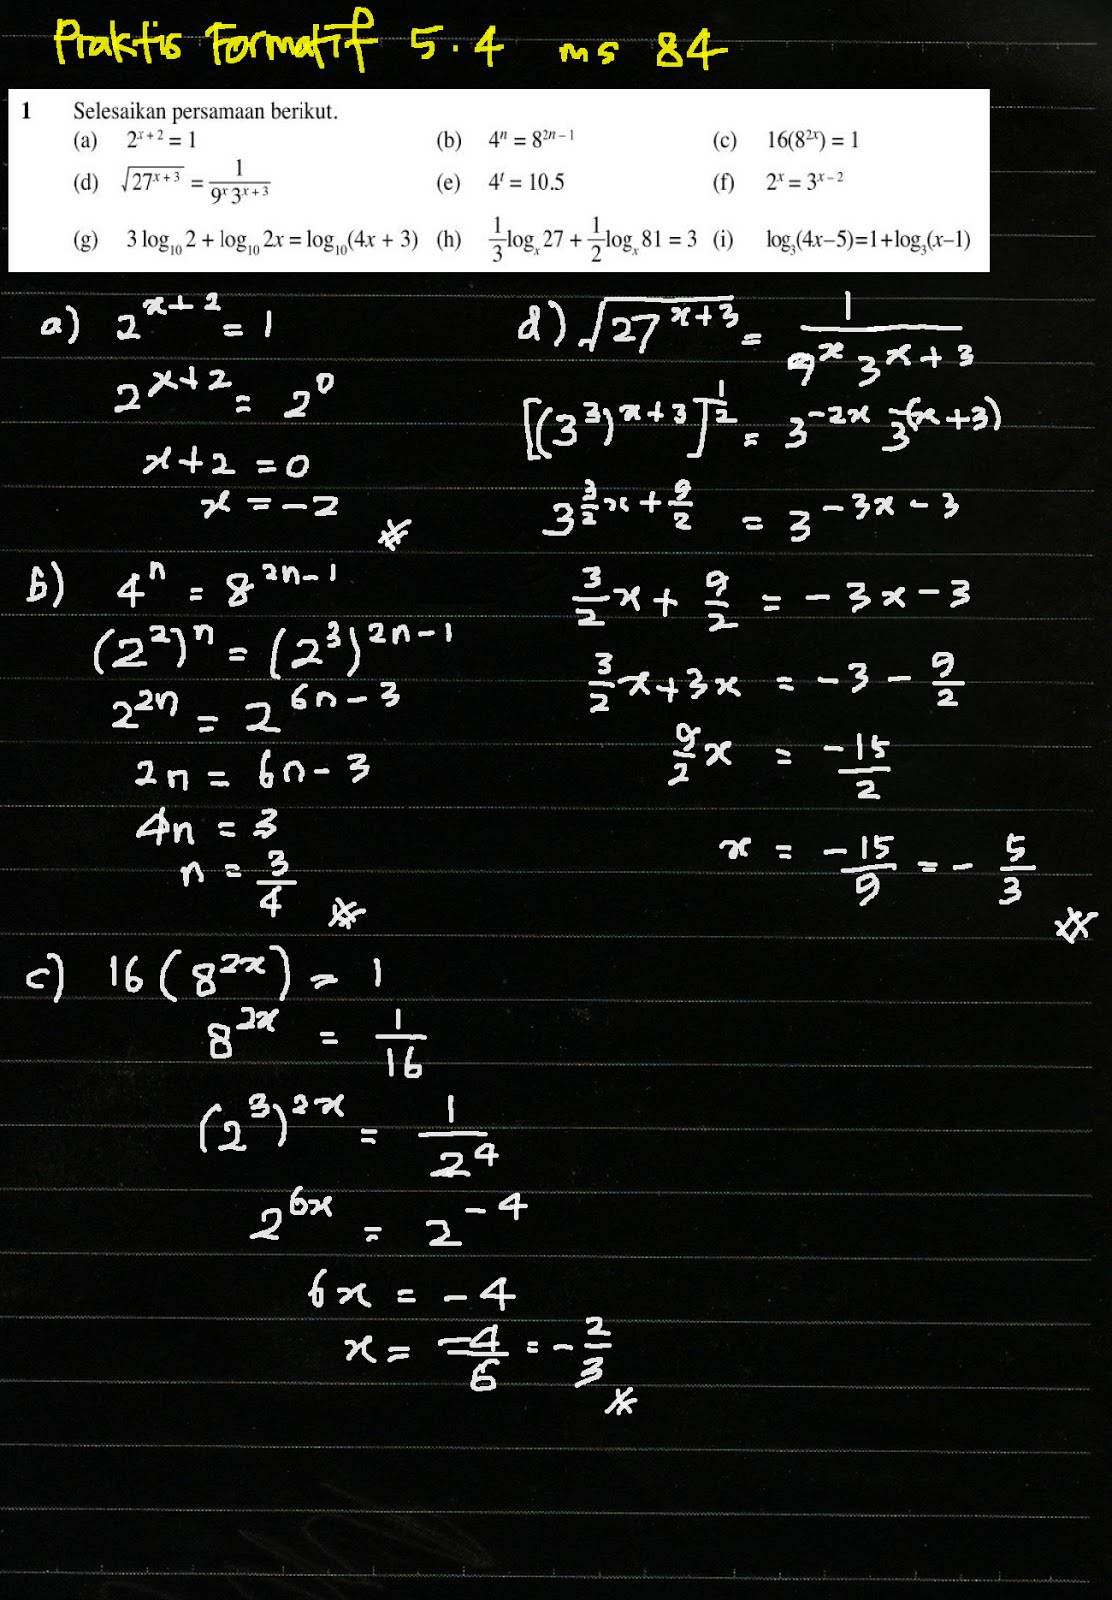 Praktis Formatif 5.4 ms 84
1 Selesaikan persamaan berikut.
(a) 2^{x+2} = 1 (b) 4^n = 8^{2n-1} (c) 16(8^{2x}) = 1
(d) √(27^{x+3}) = 1/(9^x 3^{x+3}) (e) 4^t = 10.5 (f) 2^x = 3^{x-2}
(g) 3 log_10 2 + log_10 2x = log_10(4x + 3) (h) 1/3 log_x 27 + 1/2 log_x 81 = 3 (i) log_3(4x–5)=1+log_3(x–1)
a) 2^{x+2} = 1
2^{x+2} = 2^0
x+2 = 0
x = -2
b) 4^n = 8^{2n-1}
(2^2)^n = (2^3)^{2n-1}
2^{2n} = 2^{6n-3}
2n = 6n-3
4n = 3
n = 3/4
c) 16(8^{2x}) = 1
8^{2x} = 1/16
(2^3)^{2x} = 1/2^4
2^{6x} = 2^{-4}
6x = -4
x = -4/6 = -2/3
d) √(27^{x+3}) = 1/(9^x 3^{x+3})
[(3^3)^{x+3}]^{1/2} = 3^{-2x} 3^{-(x+3)}
3^{3/2 x + 9/2} = 3^{-3x-3}
3/2 x + 9/2 = -3x-3
3/2 x + 3x = -3 - 9/2
9/2 x = -15/2
x = -15/9 = -5/3